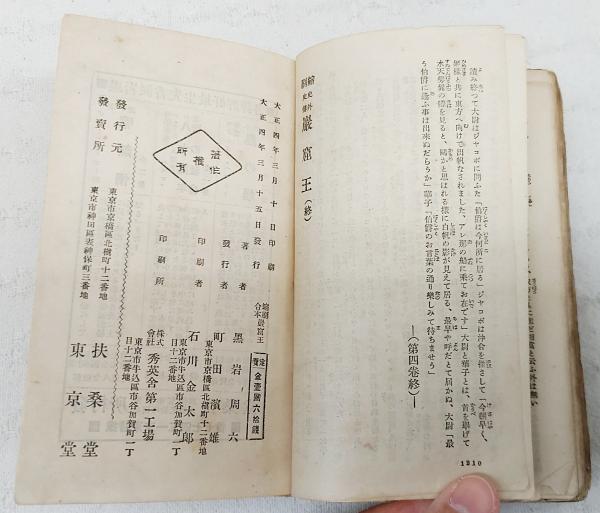 讀み終つて大尉はジヤコボに問ふた「伯爵は今何所に居る」ジヤコボは沖合を指さして「今朝早く、
姫樣と共に東方へ向けて出帆なされました、アレ那の船に乘てお在です」大尉と華子とは、首を擧げて
水天髣髴の邊を見ると、鷗かと思はれる樣に白帆の影が見えて居る、最早や呼だとて屆かぬ、大尉「最
う伯爵に逢ふ事は出來ぬだらうか」華子「伯爵のお言葉の通り樂しみて待ちませう」
―(第四卷終)―
史外
史傳
巖窟王(終)
1210
大正四年三月十日印刷
大正四年三月十五日發行
縮刷
合本巖窟王
定價
金壹圓六拾錢
著作
權
所有
著者
黑岩周六
東京市京橋區北槇町十二番地
發行者
町田濱雄
東京市牛込區市谷加賀町一丁
目十二番地
印刷者
石川金太郎
東京市牛込區市谷加賀町一丁
目十二番地
印刷所
株式
會社
秀英舍第一工場
發行元
東京市京橋區北槇町十二番地
扶桑堂
發賣所
東京市神田區表神保町三番地
東京堂